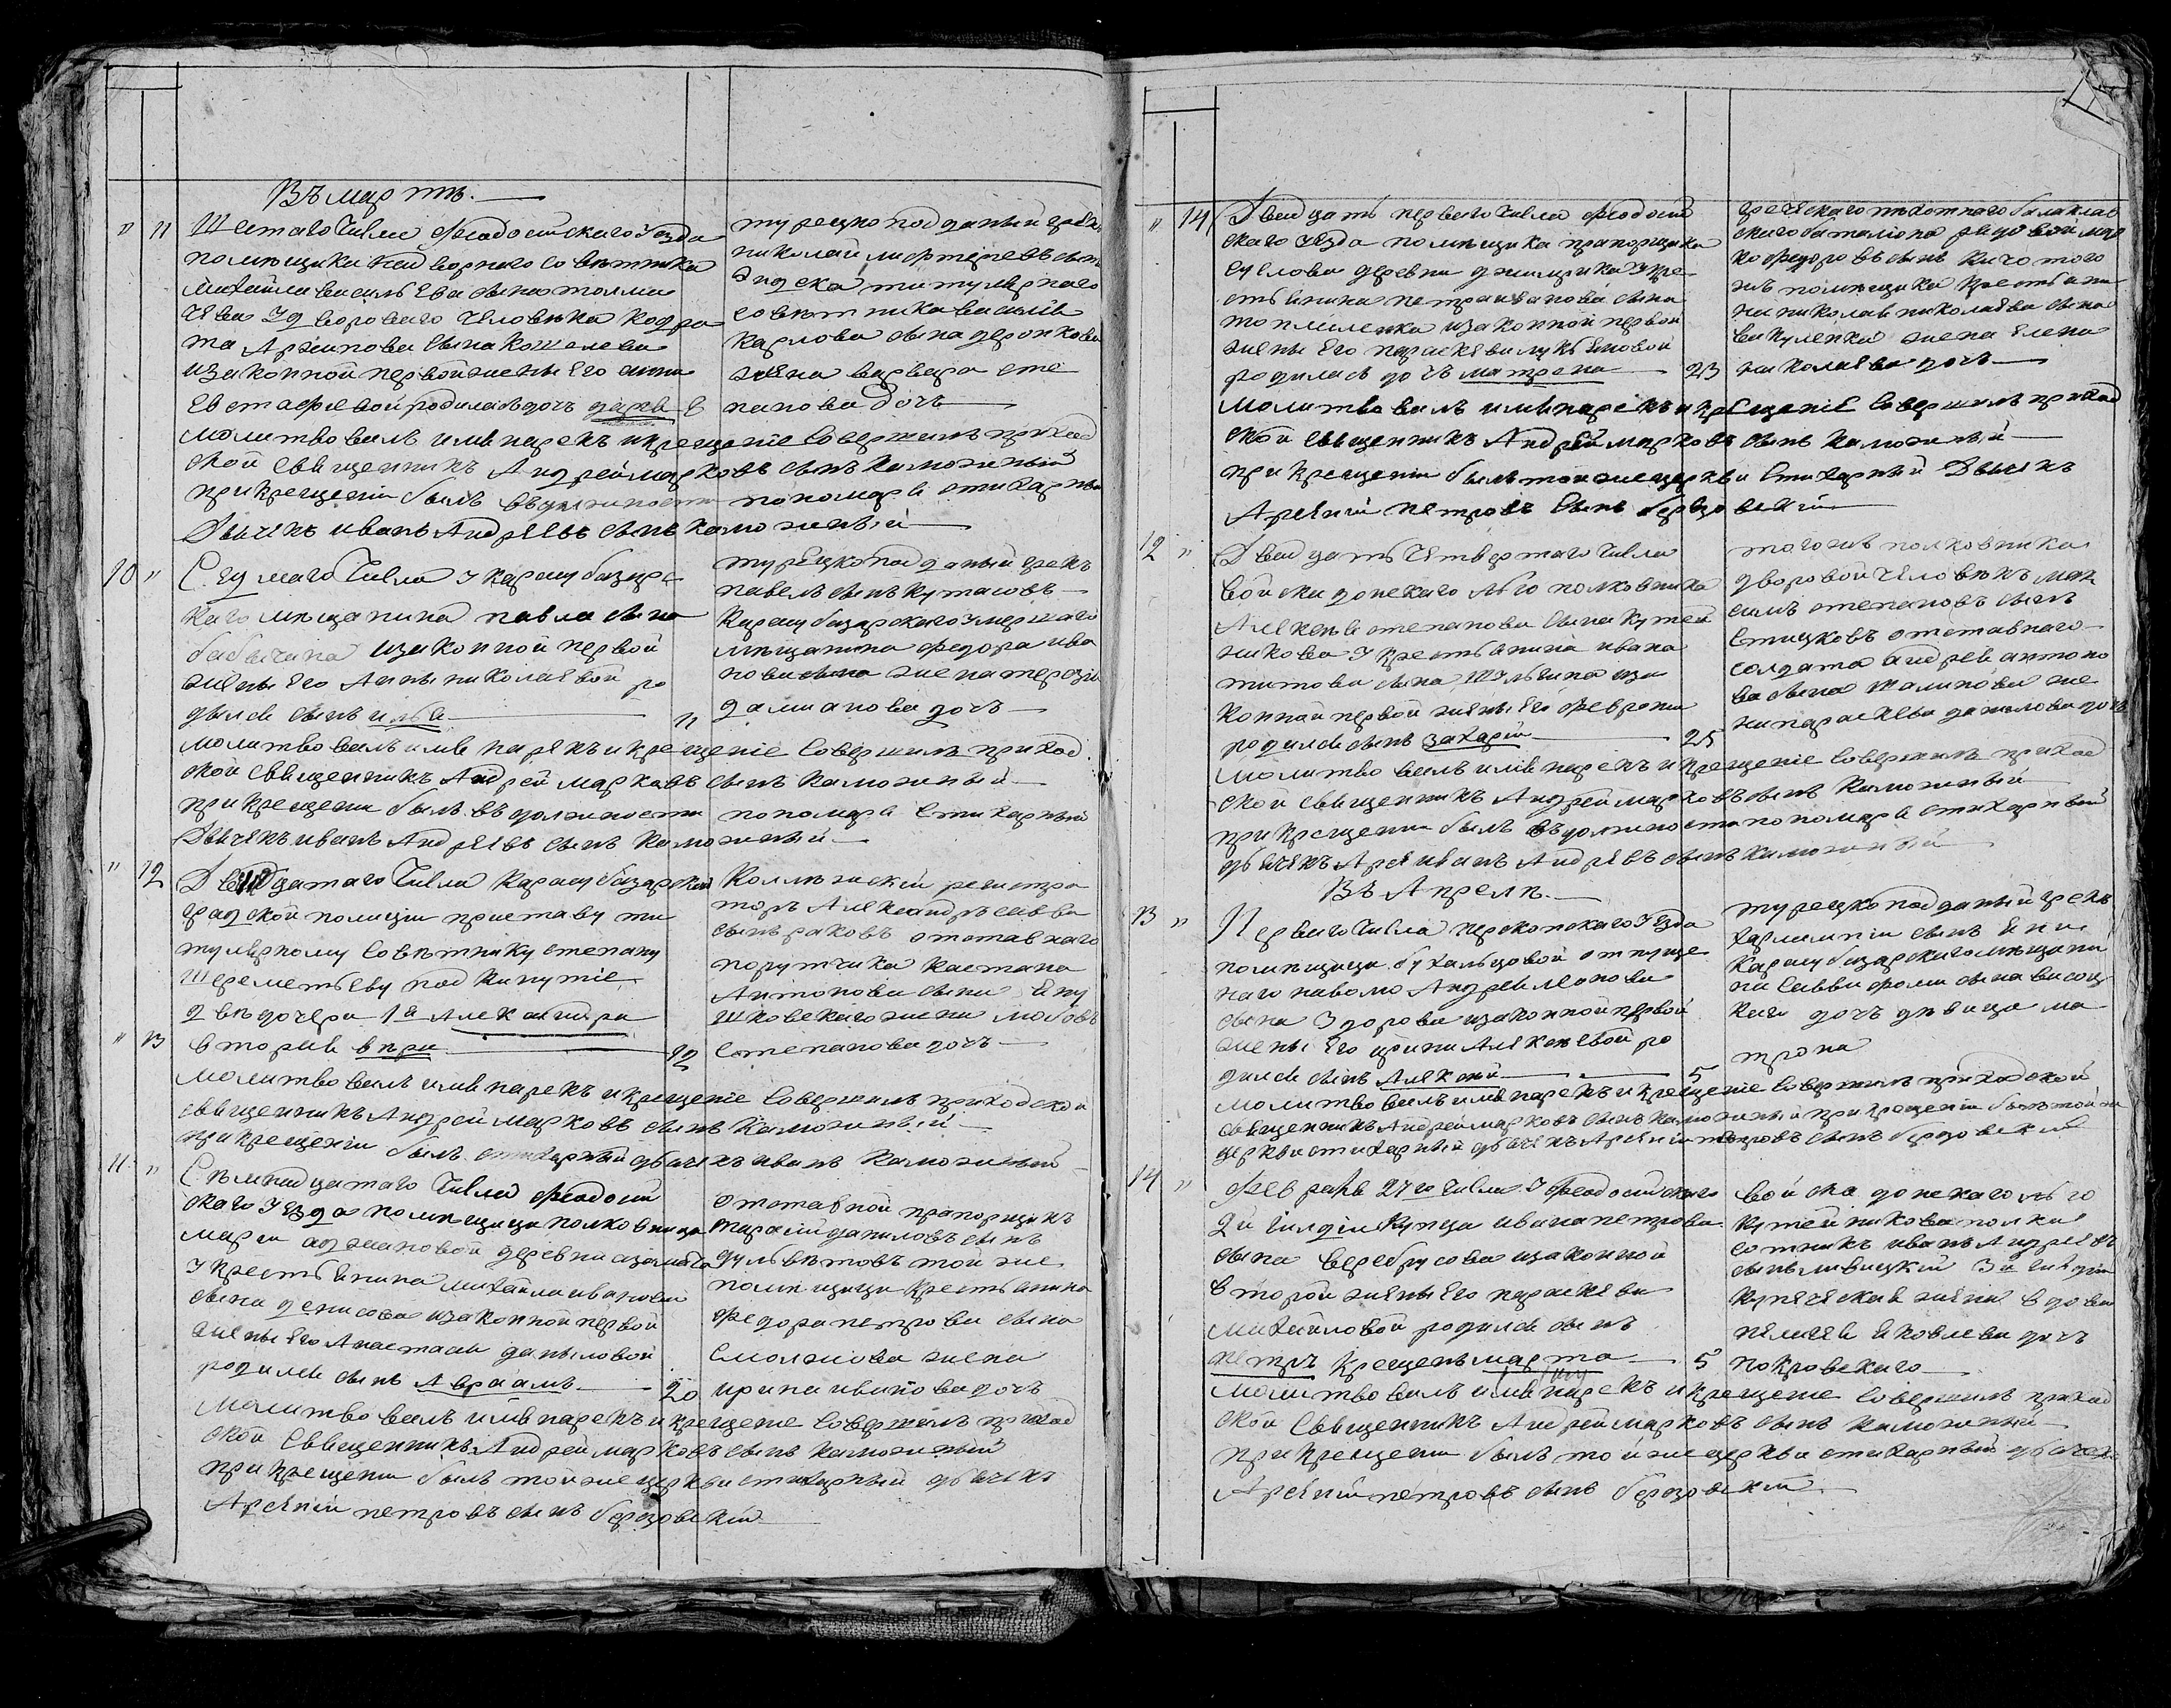 Въ мартѣ.
" 11 Шестаго Числа Феодосійскаго уезда
помѣщика надворнаго Советника
Михайла васильева сына
чева у дворового человѣка кодра
та Архипова сына кошелева
изаконной первой жены Его анны
Евстафьевой родилась дочь дарья 8
турецко подданый грекъ
николай сынъ
титулярнаго
советника василія
Карлова сына
жена варвара сте
панова дочь
молитвовалъ имя нарекъ и крещеніе Совершилъ приход
ской Священникъ Андрей марковъ сынъ калюжный
при крещеніи былъ въ должности пономаря стихарный
Дьячекъ иванъ Андреевъ сынъ калюжный
10 " Седмаго Числа у карасубазарс
каго мѣщанина павла сына
бабычина изаконной первой
жены Его Анны николаевой ро
дился сынъ илья 11
турецкоподданый грекъ
павелъ сынъ кутасовъ
Карасубазарскаго умершаго
мѣщанина Федора ива
нова сына жена
дамианова дочь
молитвовалъ имя нарекъ и крещеніе Совершилъ приход
ской Священникъ Андрей марковъ сынъ калюжный
при крещени былъ въ должности пономаря Стихарный
Дьячекъ иванъ Андреевъ сынъ калюжный
" 12 Двенадцатаго Числа Карасубазарской
градской полиціи приставу ти
тулярному Советнику степану
Шереметьеву подкинутіе
две дочери 1я Александра
" 13 вторая вѣра 12
Коллежскій регистра
торъ Александръ савва
сынъ раковъ отставнаго
порутчика кастана
Антонова сына
жена любовь
Степанова дочь
молитвовалъ имя нарекъ и крещеніе Совершилъ приходской
священникъ Андрей марковъ сынъ Калюжный
при крещеніи былъ стихарный дьячекъ иванъ калюжный
11 " Семнадцатаго Числа Феодосій
скаго уезда помѣщици полковници
марии деревни
у крестьянина михайла иванова
сына денисова изаконной первой
жены Его Анастасіи даниловой
родился сынъ Авраамъ 20
отставной прапорщикъ
даниловъ сынъ
той же
помещици крестьянина
Федора петрова сына
жена
ирина иванова дочь
Молитвовалъ имя нарекъ и крещеніе Совершилъ приход
ской Священникъ Андрей марковъ сынъ калюжный
при крещени былъ той же церкви стихарный дьячекъ
Арсеній петровъ сынъ березовскій
" 14 Двадцать перваго Числа Феодосій
скаго уезда помѣщика прапорщика
деревни у кре
стьянина петра иванова сына
изаконной первой
жены Его параскевы лукьяновой
родилась дочь матрена 23
греческаго пѣхотнаго балаклав
скаго баталіона рядовой мар
ко Федоровъ сынъ того
жъ помѣщика крестьяни
на николая николаева сына
викуленка жена Елена
николаева дочь
молитвовалъ имя нарекъ и крещеніе Совершилъ приход
ской священникъ Андрей марковъ сынъ калюжный
при крещеніи былъ той же церкви Стихарный Дьячекъ
Арсеній петровъ сынъ березовскій
12 " Двадцать четвертаго числа
войска донскаго полковника
Алексея степанова сына кутей
никова у крестьянина ивана
титова сына иза
конной первой жены Его Февронии
родился сынъ захарій 25
тогожъ полковника
дворовой человѣкъ мак
симъ степановъ сынъ
отставнаго
солдата андрея антоно
ва сына же
на параскева данилова дочь
Молитвовалъ имя нарекъ и крещеніе Совершилъ приход
ской священникъ Андрей марковъ сынъ калюжный
при крещени былъ въ должности пономаря стихарный
дьячекъ иванъ Андреевъ сынъ калюжный
Въ Апреле.
13 " Перваго числа перекопскаго уезда
помѣщици отпуще
наго Андрея леонова
сына изаконной первой
жены Его ирины Алексеевой ро
дился сынъ Алексей 5
турецко подданый грекъ
Харлампій сынъ
Карасубазарскаго мѣщани
на Саввы Фомы сына высоц
каго дочь девица ма
трона
молитвовалъ имя нарекъ и крещеніе Совершилъ приходской
священникъ Андрей марковъ сынъ калюжный при крещеніи былъ той же
церкви стихарный дьячекъ Арсеній петровъ сынъ березовскій
14 " Февраля 27го числа у Феодосійскаго
2й гилдіи Купца ивана петрова
сына изаконной
второй жены Его параскевы
михайловой родился сынъ
петръ крещенъ марта 5
войска донскаго
кутейникова полка
сотникъ иванъ Андреевъ
сынъ 3й гилдіи
купеческая жена вдова
пелагея Яковлева дочь
покровскаго
Молитвовалъ имя нарекъ и крещеніе Совершилъ приход
ской Священникъ Андрей марковъ сынъ калюжный
при крещени былъ той же церкви стихарный дьячекъ
Арсеній петровъ сынъ березовскій